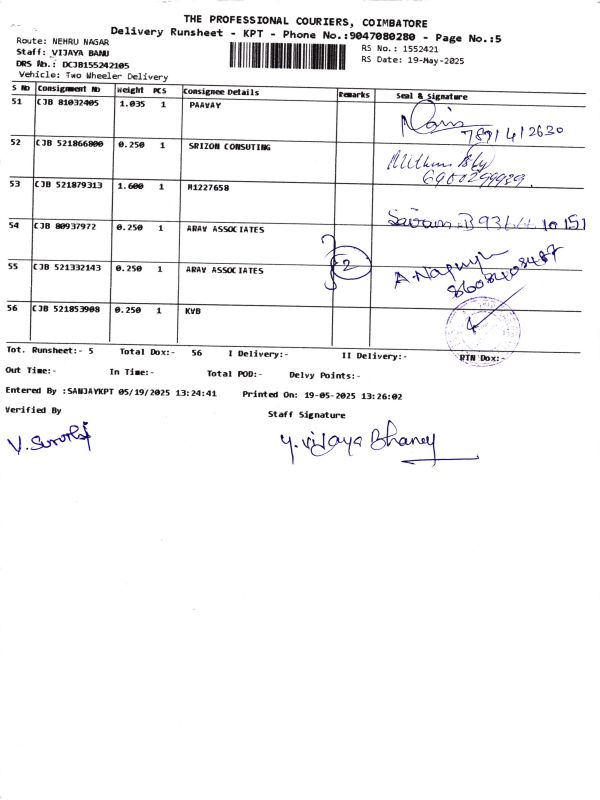 THE PROFESSIONAL COURIERS, COIMBATORE
Delivery Runsheet - KPT - Phone No.:9047080280 - Page No.:5
Route: NEHRU NAGAR
RS No.: 1552421
Staff: VIJAYA BANU
RS Date: 19-May-2025
DRS No.: DCJB155242105
Vehicle: Two Wheeler Delivery
S No Consignment No Weight PCS Consignee Details Remarks Seal & Signature
51 CJB 81032405 1.035 1 PAAVAY
7891412630
52 CJB 521866800 0.250 1 SRIZON CONSUTING
53 CJB 521879313 1.600 1 M1227658
Sairam.B
54 CJB 80937972 0.250 1 ARAV ASSOCIATES
2
55 CJB 521332143 0.250 1 ARAV ASSOCIATES
8608408487
56 CJB 521853908 0.250 1 KVB
Tot. Runsheet:- 5 Total Dox:- 56 I Delivery:- II Delivery:- RTN Dox:-
Out Time:- In Time:- Total POD:- Delvy Points:-
Entered By :SANJAYKPT 05/19/2025 13:24:41 Printed On: 19-05-2025 13:26:02
Verified By Staff Signature
Y. Vijaya Bhaney